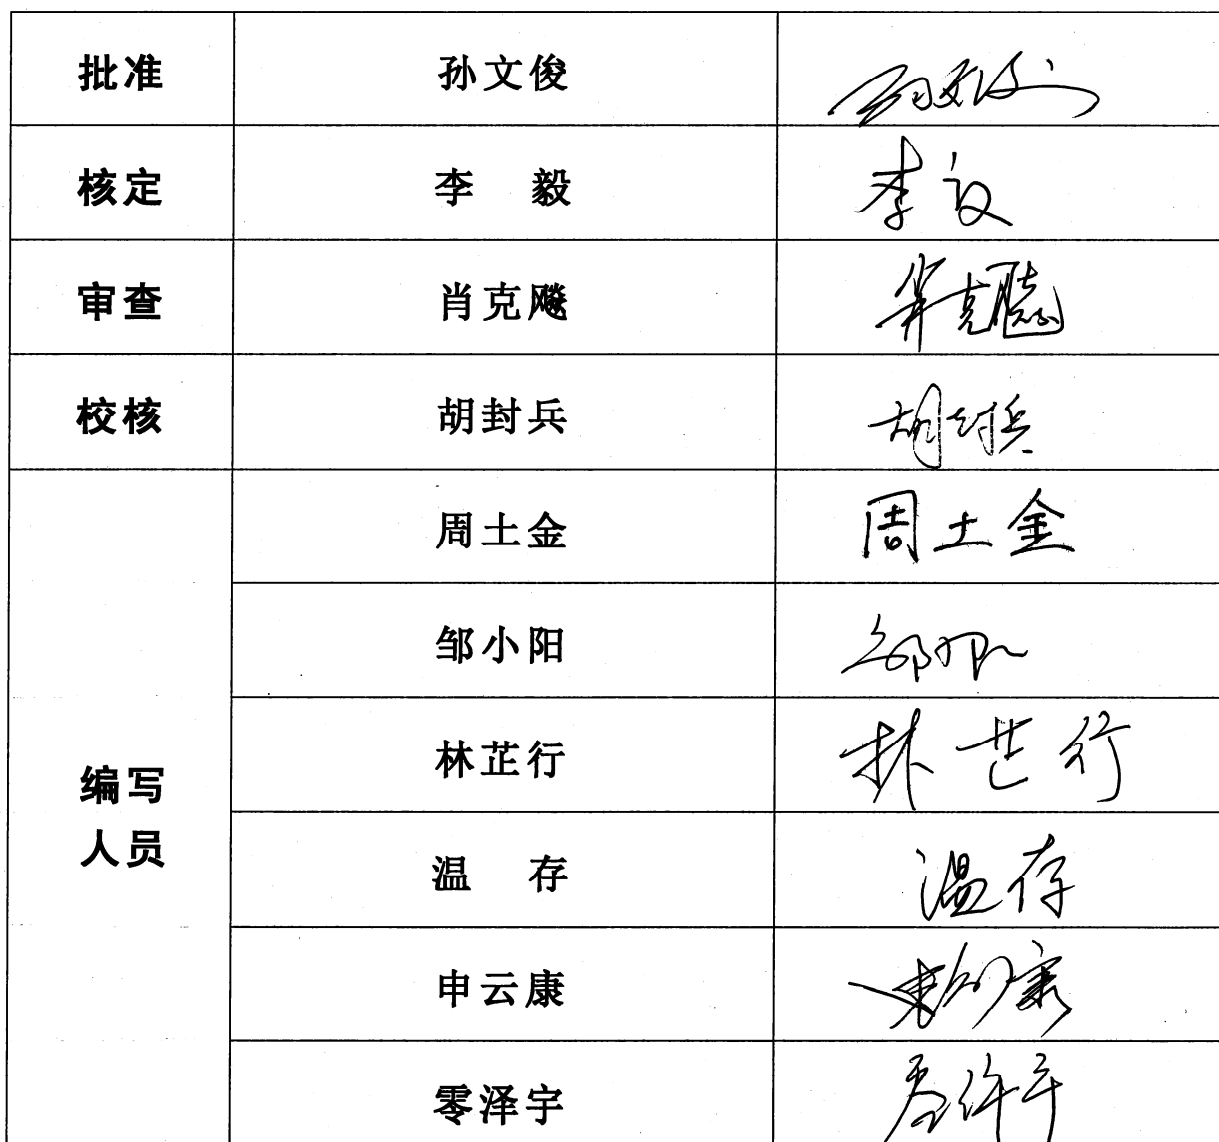 批准 孙文俊 孙文俊
核定 李 毅 李毅
审查 肖克飚 肖克飚
校核 胡封兵 胡封兵
编写
人员
周土金 周土金
邹小阳
林芷行 林芷行
温 存 温存
申云康
零泽宇